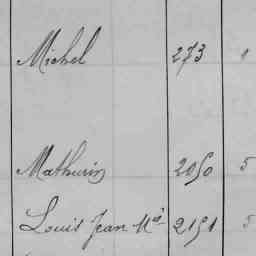 Michel 273
Mathurin 2050 5
Louis Jean Mᵃ 2151 5